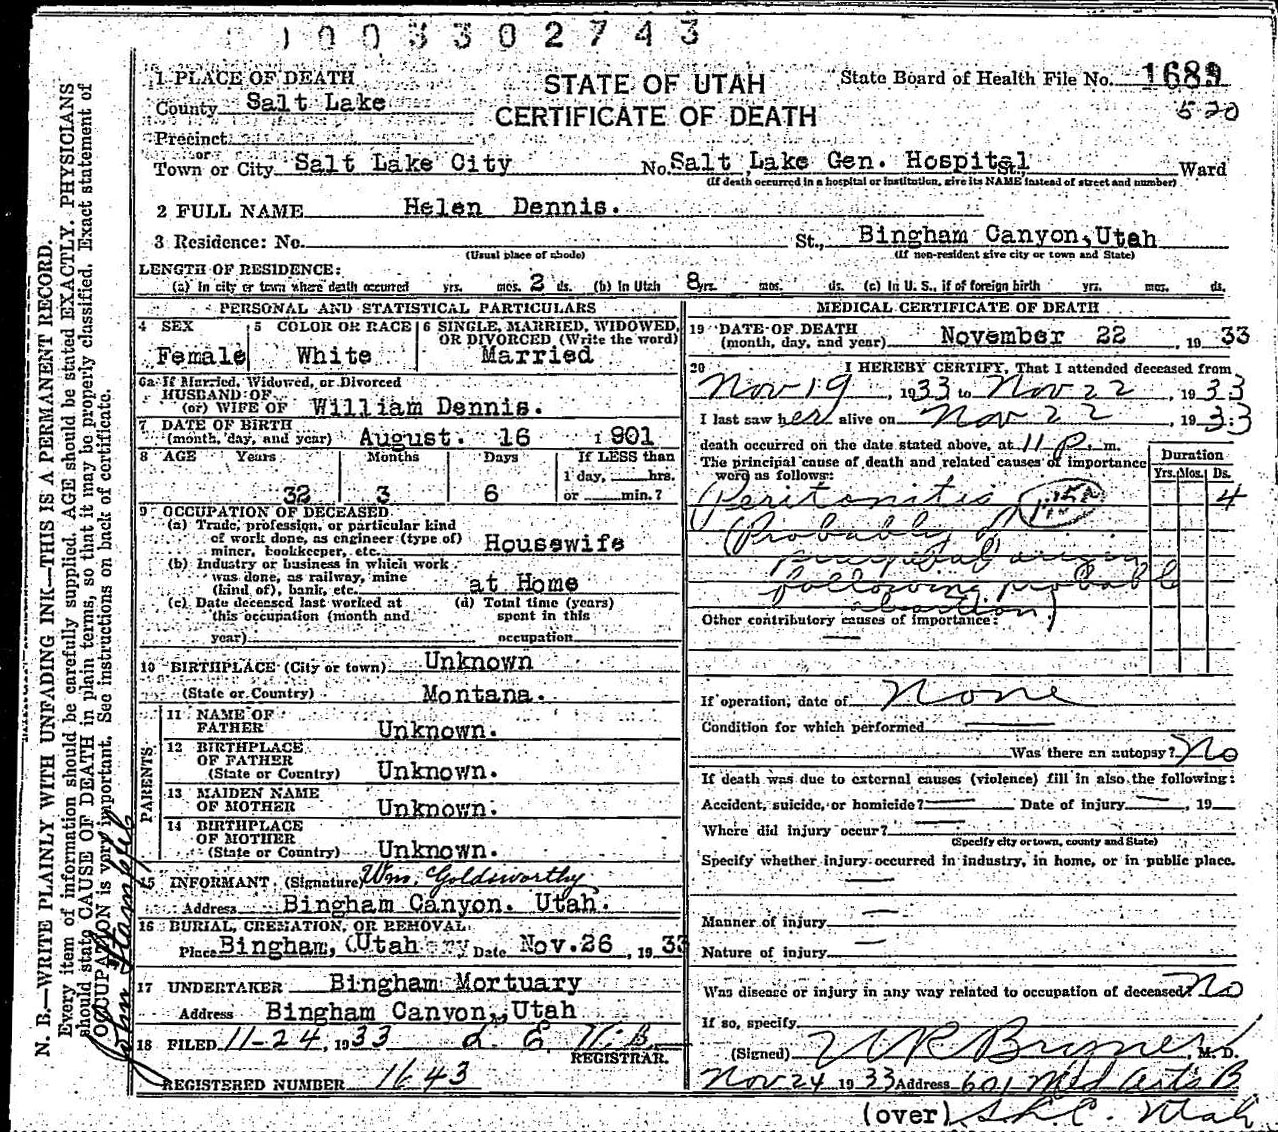 1003302743
STATE OF UTAH
CERTIFICATE OF DEATH
State Board of Health File No. 1689
520
1 PLACE OF DEATH
County Salt Lake
Precinct
or
Town or City Salt Lake City No. Salt Lake Gen. Hospital St., Ward
(If death occurred in a hospital or institution, give its NAME instead of street and number)
2 FULL NAME Helen Dennis.
3 Residence: No. St., Bingham Canyon, Utah
(Usual place of abode) (If non-resident give city or town and State)
LENGTH OF RESIDENCE:
(a) In city or town where death occurred yrs. mos. 2 ds. (b) In Utah 8 yrs. mos. ds. (c) In U. S., if of foreign birth yrs. mos. ds.
PERSONAL AND STATISTICAL PARTICULARS
4 SEX Female
5 COLOR OR RACE White
6 SINGLE, MARRIED, WIDOWED, OR DIVORCED (Write the word) Married
6a If Married, Widowed, or Divorced
HUSBAND OF
(or) WIFE OF William Dennis.
7 DATE OF BIRTH
(month, day, and year) August. 16 1901
8 AGE Years Months Days If LESS than
1 day, hrs.
32 3 6 or min.?
9 OCCUPATION OF DECEASED
(a) Trade, profession, or particular kind
of work done, as engineer (type of)
miner, bookkeeper, etc. Housewife
(b) Industry or business in which work
was done, as railway, mine
(kind of), bank, etc. at Home
(c) Date deceased last worked at
this occupation (month and
year)
(d) Total time (years)
spent in this
occupation
10 BIRTHPLACE (City or town) Unknown
(State or Country) Montana.
PARENTS
11 NAME OF
FATHER Unknown.
12 BIRTHPLACE
OF FATHER
(State or Country) Unknown.
13 MAIDEN NAME
OF MOTHER Unknown.
14 BIRTHPLACE
OF MOTHER
(State or Country) Unknown.
15 INFORMANT (Signature) Wm. Goldsworthy
Address Bingham Canyon. Utah.
16 BURIAL, CREMATION, OR REMOVAL
Place Bingham, Utah Date Nov. 26, 1933
17 UNDERTAKER Bingham Mortuary
Address Bingham Canyon, Utah
18 FILED 11-24, 1933
REGISTRAR.
REGISTERED NUMBER 1643
MEDICAL CERTIFICATE OF DEATH
19 DATE OF DEATH
(month, day, and year) November 22, 1933
20 I HEREBY CERTIFY, That I attended deceased from
Nov 19, 1933 to Nov 22, 1933
I last saw her alive on Nov 22, 1933
death occurred on the date stated above, at 11 P. m.
The principal cause of death and related causes of importance
were as follows:
Duration
Yrs. Mos. Ds.
Peritonitis 4
(Probably of
puerpal origin
following probable
abortion)
Other contributory causes of importance:
If operation, date of None
Condition for which performed
Was there an autopsy? No
If death was due to external causes (violence) fill in also the following:
Accident, suicide, or homicide? Date of injury , 19
Where did injury occur?
(Specify city or town, county and State)
Specify whether injury occurred in industry, in home, or in public place.
Manner of injury
Nature of injury
Was disease or injury in any way related to occupation of deceased? No
If so, specify
(Signed) , M. D.
Nov 24 1933 Address 601 Med Arts B
(over) S.L.C. Utah
N. B.—WRITE PLAINLY WITH UNFADING INK—THIS IS A PERMANENT RECORD.
Every item of information should be carefully supplied. AGE should be stated EXACTLY. PHYSICIANS
should state CAUSE OF DEATH in plain terms, so that it may be properly classified. Exact statement of
OCCUPATION is very important. See instructions on back of certificate.